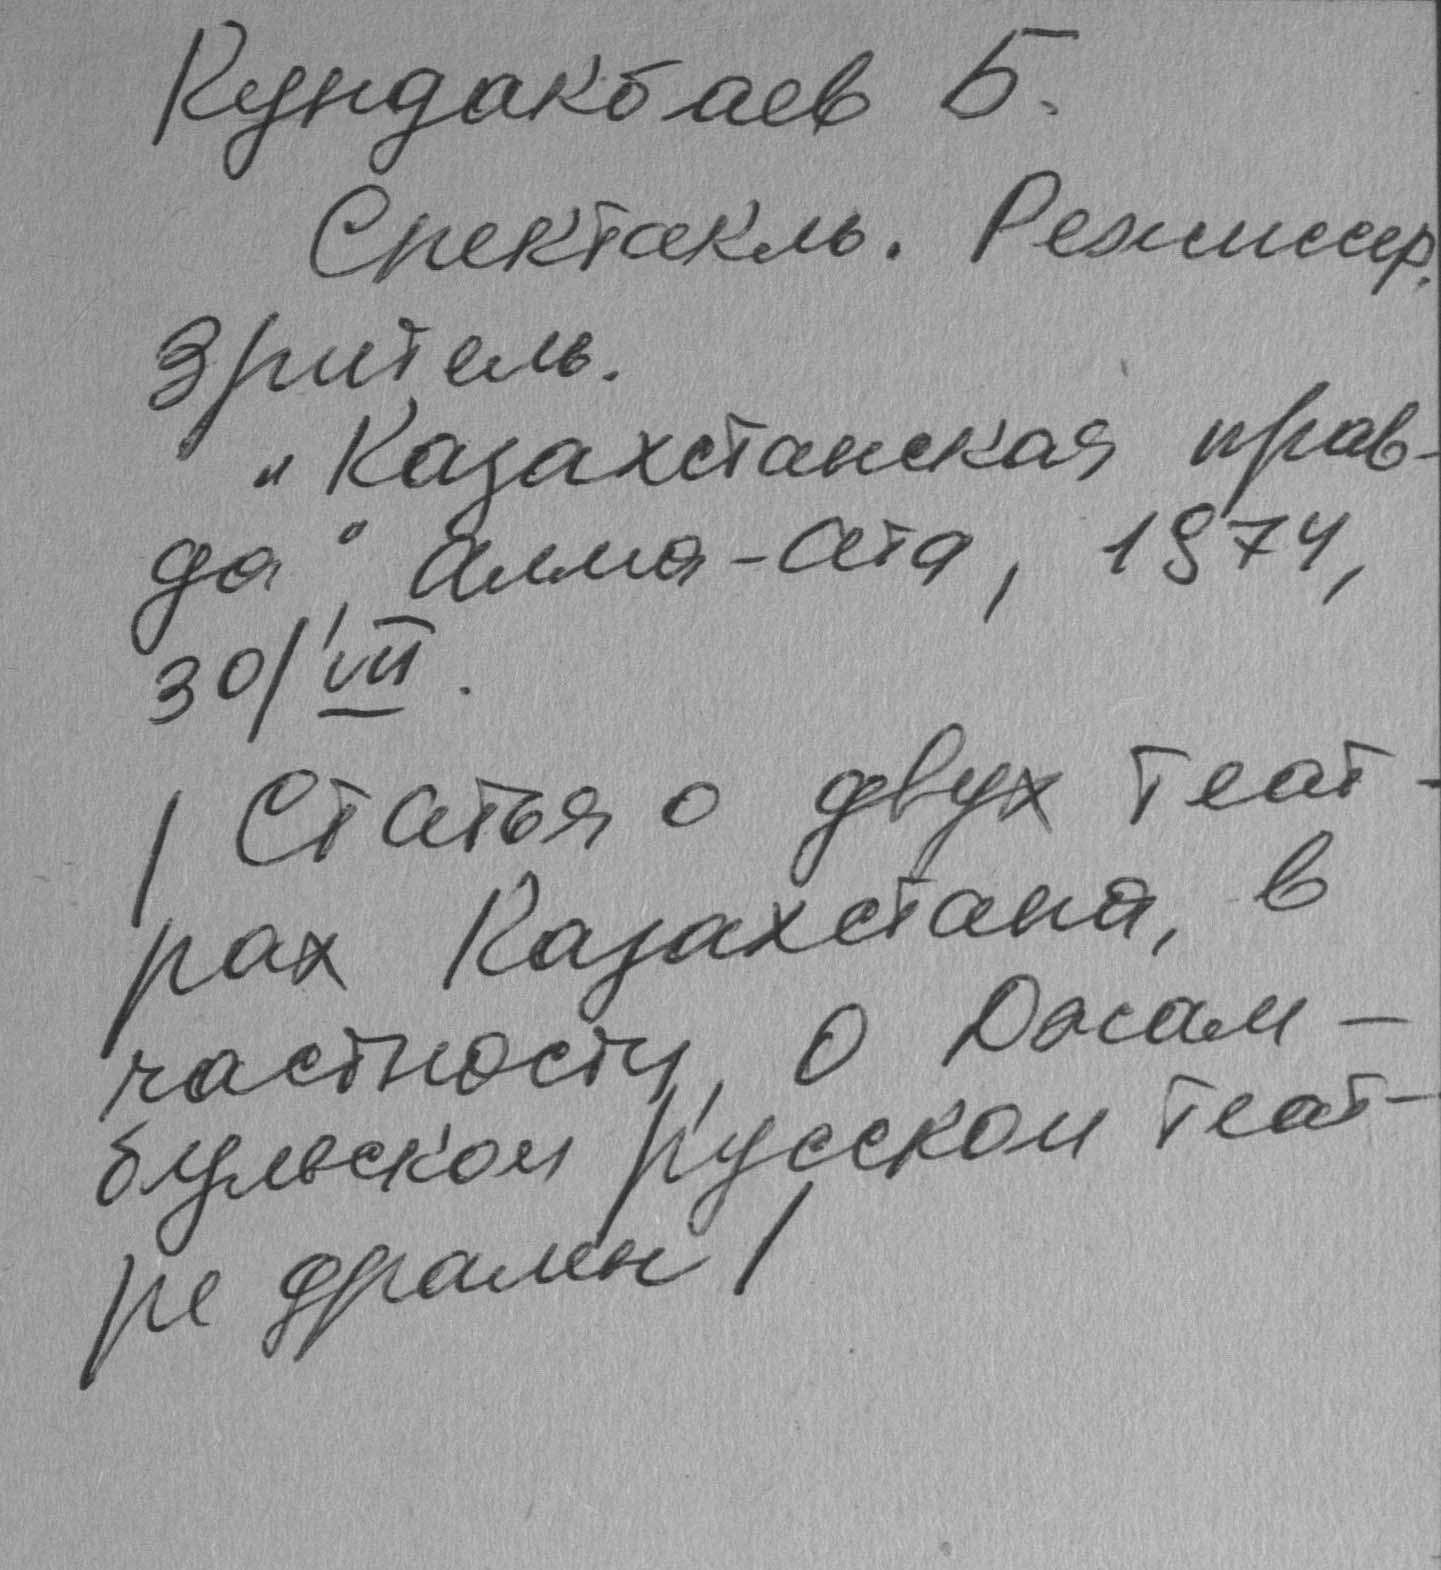 Кундакбаев Б.
Спектакль. Режиссер.
Зритель.
"Казахстанская прав-
да", Алма-Ата, 1974,
30/VII.
/ Статья о двух теат-
рах Казахстана, в
частности, о Джам-
бульском русском теат-
ре драмы /